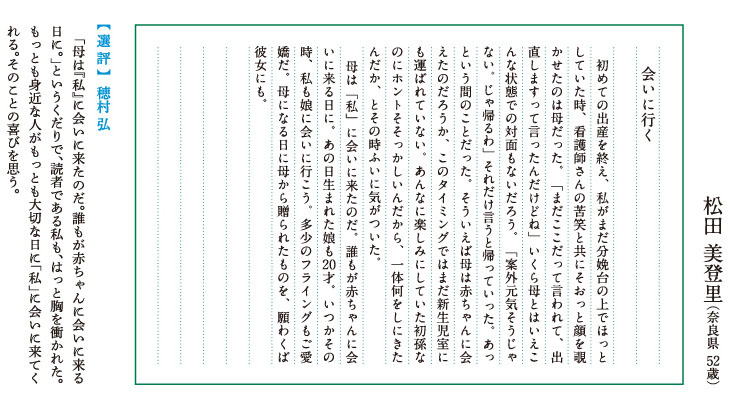 松田 美登里（奈良県 52歳）
会いに行く
初めての出産を終え、私がまだ分娩台の上でほっと
していた時、看護師さんの苦笑と共にそおっと顔を覗
かせたのは母だった。「まだここだって言われて、出
直しますって言ったんだけどね」いくら母とはいえこ
んな状態での対面もないだろう。「案外元気そうじゃ
ない。じゃ帰るわ」それだけ言うと帰っていった。あっ
という間のことだった。そういえば母は赤ちゃんに会
えたのだろうか、このタイミングではまだ新生児室に
も運ばれていない。あんなに楽しみにしていた初孫な
のにホントそそっかしいんだから、一体何をしにきた
んだか、とその時ふいに気がついた。
母は「私」に会いに来たのだ。誰もが赤ちゃんに会
いに来る日に。あの日生まれた娘も20才。いつかその
時、私も娘に会いに行こう。多少のフライングもご愛
嬌だ。母になる日に母から贈られたものを、願わくば
彼女にも。
【選評】穂村 弘
「母は『私』に会いに来たのだ。誰もが赤ちゃんに会いに来る
日に。」というくだりで、読者である私も、はっと胸を衝かれた。
もっとも身近な人がもっとも大切な日に「私」に会いに来てく
れる。そのことの喜びを思う。